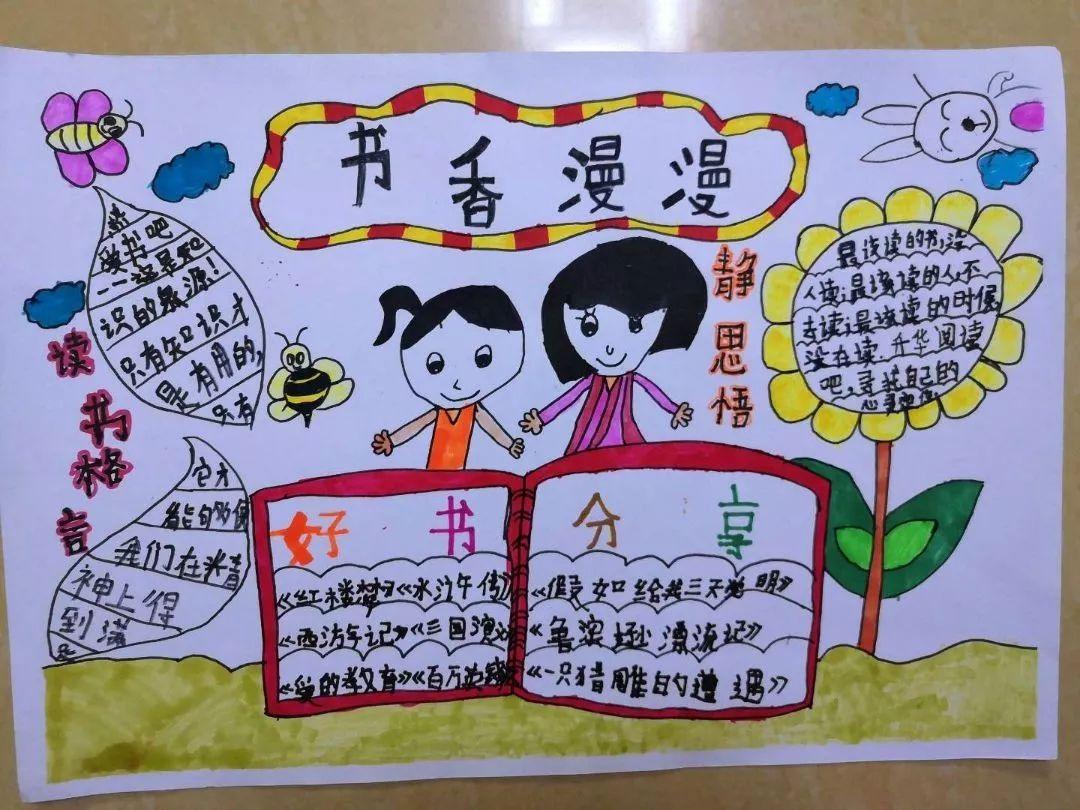 书香漫漫
读书格言
读书吧
——这是知
识的泉源!
只有知识才
是有用的,
只有
它才
能够使
我们在精
神上得
到满
足
静思悟
最该读的书,没
人读;最该读的人,不
去读;最该读的时候
没在读.升华阅读
吧,寻找自己的
好书分享
《红楼梦》《水浒传》
《西游记》《三国演义
《爱的教育》《百万英镑
《假如给我三天光明》
《鲁滨逊漂流记》
《一只猎雕的遭遇》